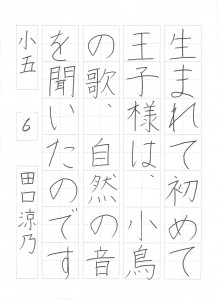 生まれて初めて
王子様は、小鳥
の歌、自然の音
を聞いたのです
小五　6　田口涼乃